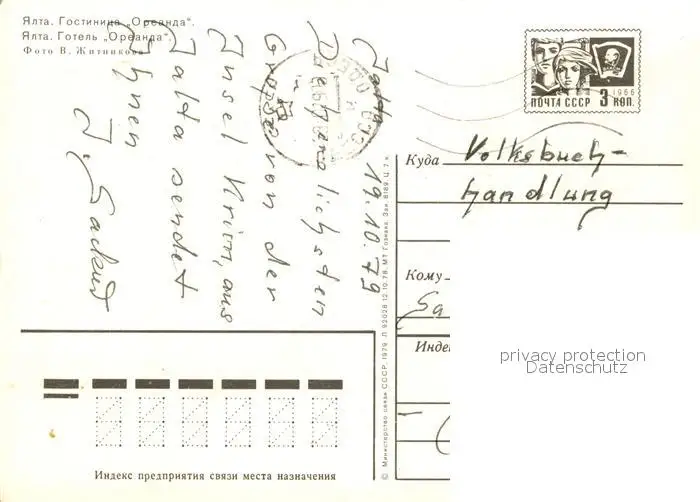 Ялта. Гостиница „Ореанда“.
Ялта. Готель „Ореанда“.
Фото В. Житникова
Jalta 19.10.79
Die herzlichsten
Grüße von der
Insel Krim, aus
Jalta sendet
Ihnen
J.
1966
ПОЧТА СССР 3 КОП.
Куда Volksbuch-
handlung
Кому
Sa
Индек
privacy protection
Datenschutz
© Министерство связи СССР, 1979 Л 92028 12.10.78. МТ Гознака. Зак. 8189. Ц. 7 к.
Индекс предприятия связи места назначения